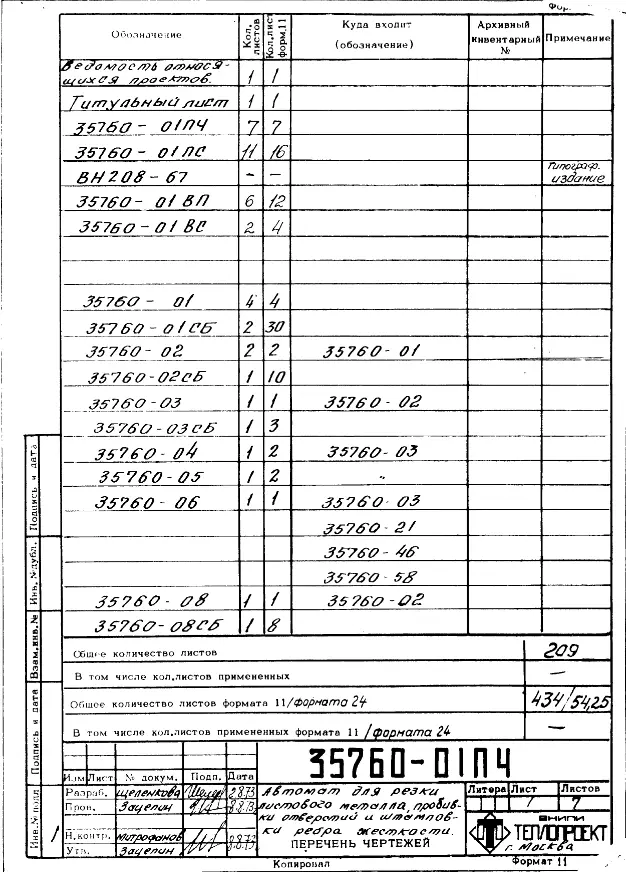 Обозначение Кол. листов Кол.лист форм.11 Куда входит (обозначение) Архивный инвентарный № Примечание
Ведомость относя-
щихся проектов. 1 1
Титульный лист 1 1
35760-01ПЧ 7 7
35760-01ПС 11 16
ВН208-67 — — Типограф. издание
35760-01ВП 6 12
35760-01ВС 2 4
35760-01 4 4
35760-01СБ 2 30
35760-02 2 2 35760-01
35760-02СБ 1 10
35760-03 1 1 35760-02
35760-03СБ 1 3
35760-04 1 2 35760-03
35760-05 1 2 "
35760-06 1 1 35760-03
35760-21
35760-46
35760-58
35760-08 1 1 35760-02
35760-08СБ 1 8
Общее количество листов 209
В том числе кол.листов примененных —
Общее количество листов формата 11/формата 24 434/54,25
В том числе кол.листов примененных формата 11/формата 24 —
Подпись и дата
Инв. № дубл.
Взам.инв.№
Подпись и дата
Инв.№ подл.
35760-01ПЧ
Изм Лист № докум. Подп. Дата
Разраб. Щеленкова
Пров. Зацепин
Н.контр. Митрофанов
Утв. Зацепин
Автомат для резки
листового металла, пробив-
ки отверстий и штампов-
ки ребра жесткости.
ПЕРЕЧЕНЬ ЧЕРТЕЖЕЙ
Литера Лист Листов
1 7
ВНИПИ
ТЕПЛОПРОЕКТ
г. Москва
Копировал Формат 11